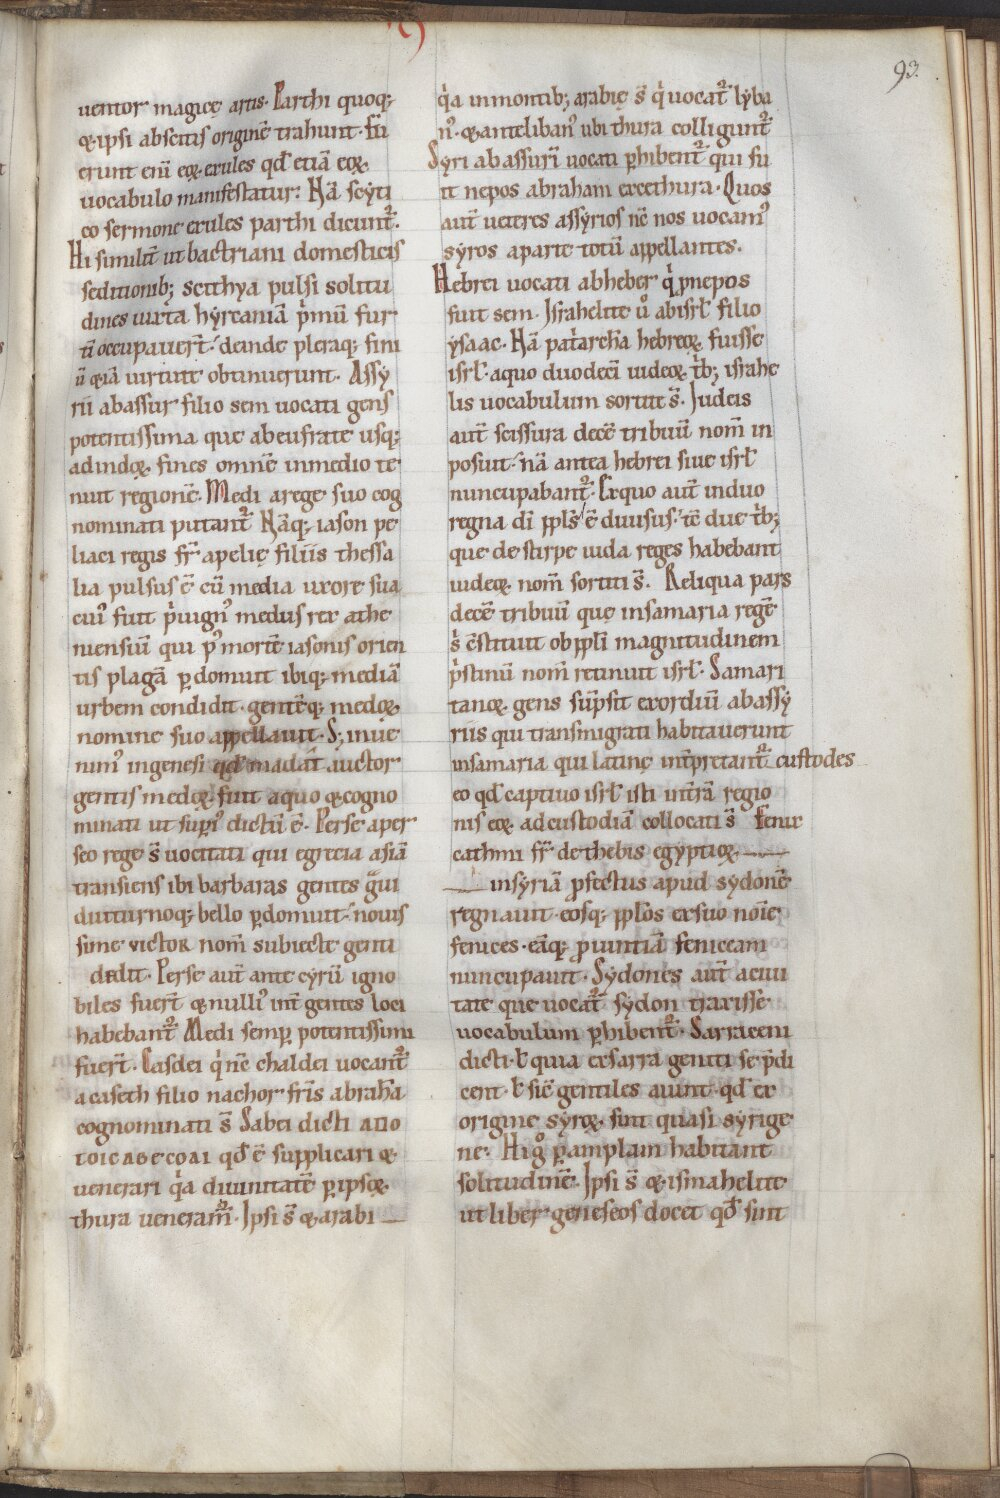 93.
uentor magicę artis. Parthi quoq;
&ipsi abscitis originē trahunt. Fu̅
erunt eni̅ eoꝝ exules qđ etiā eoꝝ
uocabulo manifestatur: Nā scyti
co sermone exules parthi dicunt᷑.
Hi similit̅ ut bactriani domesticis
seditionib; scithya pulsi solitu
dines iuxta hyrcaniā p̍mu̅ fur
ti̅ occupauer̅t. deinde pleraq; fini
u̅ &iā uirtute obtinuerunt. Assy
rii abassur filio sem uocati gens
potentissima que abeufrate usq;
adindoꝝ fines omnē inmedio te
nuit regionē. Medi arege suo cog
nominati putant᷑ Nāq; iason pe
liaci regis fr̅ apelię filiis thessa
lia pulsus ē cu̅ media uxore sua
cui᷒ fuit p̍uign᷒ medus rex athe
niensiu̅ qui p᷒ mortē iasonis orien
tis plagā ꝑdomuit ibiq; mediā
urbem condidit. gentēq; medoꝝ
nomine suo appellauit. S; inue
nim᷒ ingenesi qđ madai̅ auctor
gentis medoꝝ fuit aquo &cogno
minati ut supi᷒ dictu̅ ē. Perse aper
seo rege s̅ uocitati qui egrecia asiā
transiens ibi barbaras gentes gͣui
diuturnoq; bello ꝑdomuit. nouis
sime victor nom̅ subiecte genti
dedit. Perse aut̅ ante cyru̅ igno
biles fuer̅t &nulli᷒ int̅ gentes loci
habebant᷑ Medi semꝑ potentissimi
fuer̅t. Casdei q̍ nc̅ chaldei uocant᷑
acaseth filio nachor fr̅is abrah̅a
cognominati s̅ Sabei dicti ΑΠΟ
ΤΟΙCΑΒΕCΟΑΙ qđ ē supplicari &
uenerari q̍a diuinitatē ꝑipsoꝝ
thura ueneram᷑. Ipsi s̅ &arabi
q̍a inmontib; arabię s̅ q̍ uocat᷑ lyba
n᷒. &anteliban᷒ ubi thura colligunt᷑
Syri abassuri̅ uocati ꝑhibent᷑ qui fu
it nepos abraham excethura. Quos
aut̅ ueteres assyrios nc̅ nos uocam᷒
syros aparte totu̅ appellantes.
Hebrei uocati abheber q̍ ꝓnepos
fuit sem. Israhelite ů abisrł filio
ysaac. Nā pat̍arch̅a hebreoꝝ fuisse
isrł. aquo duodeci̅ iudeoꝝ t̍b; israhe
lis uocabulum sortite s̅. Iudeis
aut̅ scissura decē tribuu̅ nom̅ in
posuit. nā antea hebrei siue isrł
nuncupabant᷑. Exquo aut̅ induo
regna di̅ ppłs ē diuisus. tc̅ due t̍b;
que de stirpe iuda reges habebant
iudeoꝝ nom̅ sortiti s̅. Reliqua pars
decē tribuu̅ quę insamaria regē
s̍ c̅stituit ob ppłi magnitudinem
p̍stinu̅ nom̅ retinuit isrł. Samari
tanoꝝ gens su̅psit exordiu̅ abassy
riis qui transmigrati habitauerunt
insamaria qui latinę int̅pretant᷑ custodes
eo qđ captiuo isrł isti intra̅ regio
nis eoꝝ adcustodiā collocati s̅ Fenix
cathmi fr̅ de thebis egyptioꝝ
insyriā ꝓfectus apud sydonē
regnauit. eosq; ppłos exsuo noi̅e
fenices. eāq; ꝓuintiā feniceam
nuncupauit. Sydones aut̅ aciui
tate que uocat᷑ sydon traxisse
uocabulum ꝑhibent᷑. Sarraceni
dicti. ł quia exsarra geniti se p̅di
cent. ł sic̅ gentiles aiunt. qđ ex
origine syroꝝ sint quasi syrige
ne. Hi g̊ ꝑamplam habitant
solitudinē. Ipsi s̅ & ismahelite
ut liber geneseos docet qđ sint